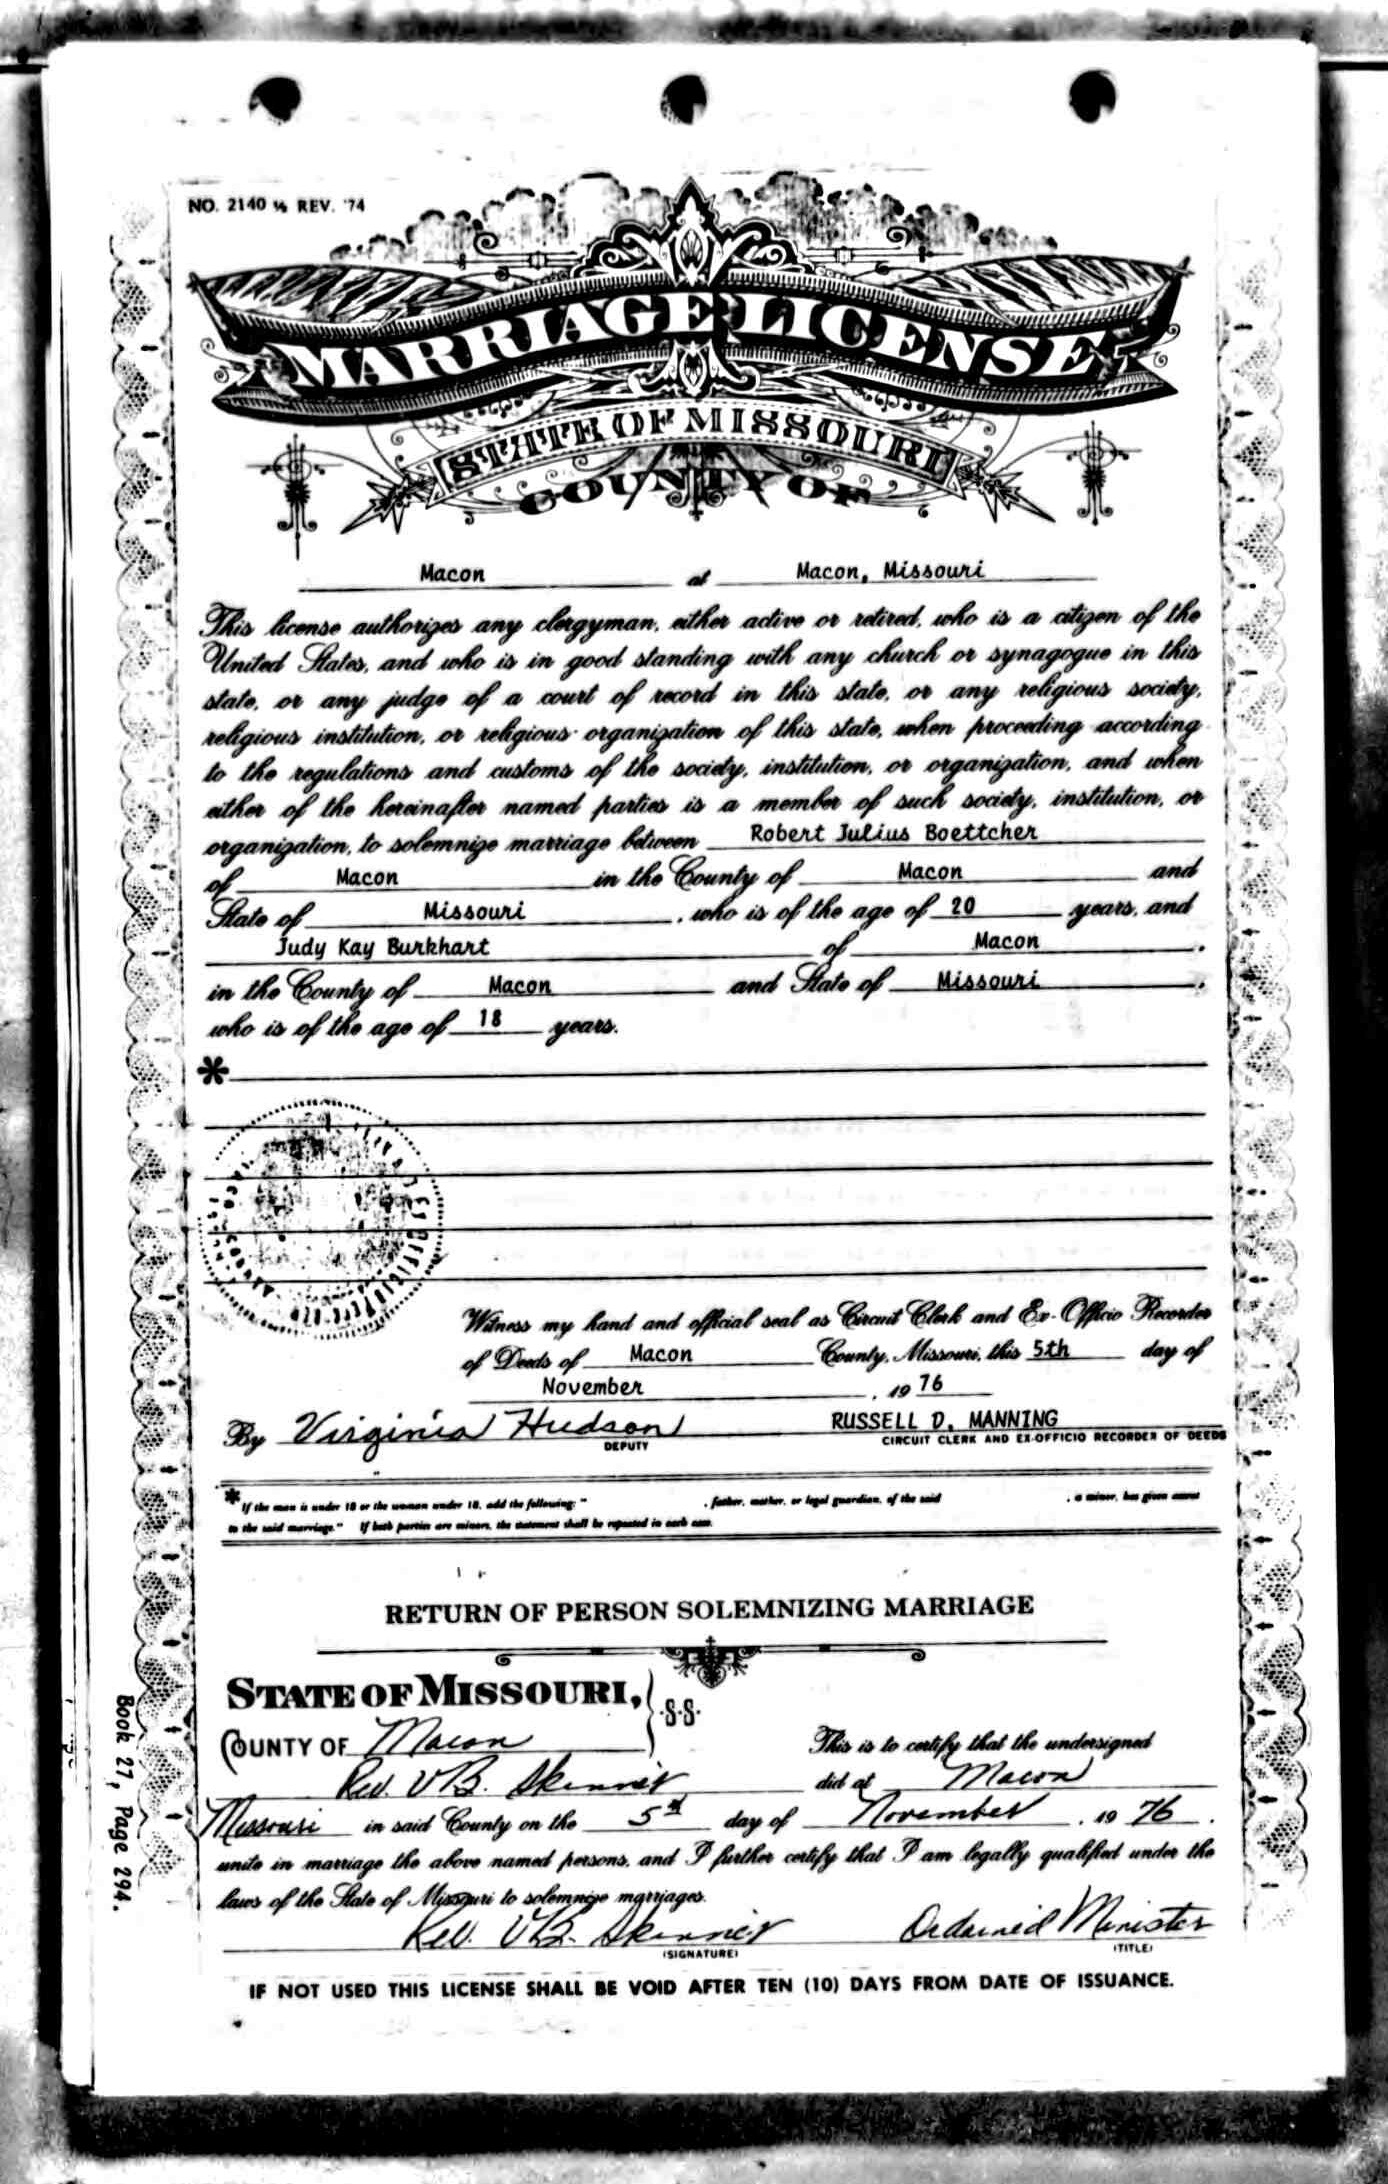 NO. 2140 ½ REV. '74
MARRIAGE LICENSE
STATE OF MISSOURI
COUNTY OF
Macon at Macon, Missouri
This license authorizes any clergyman, either active or retired, who is a citizen of the
United States, and who is in good standing with any church or synagogue in this
state, or any judge of a court of record in this state, or any religious society,
religious institution, or religious organization of this state, when proceeding according
to the regulations and customs of the society, institution, or organization, and when
either of the hereinafter named parties is a member of such society, institution, or
organization, to solemnize marriage between Robert Julius Boettcher
of Macon in the County of Macon and
State of Missouri, who is of the age of 20 years, and
Judy Kay Burkhart of Macon,
in the County of Macon and State of Missouri,
who is of the age of 18 years.
*
Witness my hand and official seal as Circuit Clerk and Ex-Officio Recorder
of Deeds of Macon County, Missouri, this 5th day of
November, 19 76
By Virginia Hudson RUSSELL D. MANNING
DEPUTY CIRCUIT CLERK AND EX-OFFICIO RECORDER OF DEEDS
* If the man is under 18 or the woman under 18, add the following: " , father, mother, or legal guardian, of the said , a minor, has given assent
to the said marriage." If both parties are minors, the statement shall be repeated in each case.
RETURN OF PERSON SOLEMNIZING MARRIAGE
STATE OF MISSOURI, S.S.
COUNTY OF Macon This is to certify that the undersigned
Rev. V B. Skinner did at Macon
Missouri in said County on the 5th day of November, 19 76.
unite in marriage the above named persons, and I further certify that I am legally qualified under the
laws of the State of Missouri to solemnize marriages.
Rev. V.B. Skinner Ordained Minister
(SIGNATURE) (TITLE)
IF NOT USED THIS LICENSE SHALL BE VOID AFTER TEN (10) DAYS FROM DATE OF ISSUANCE.
Book 27, Page 294.